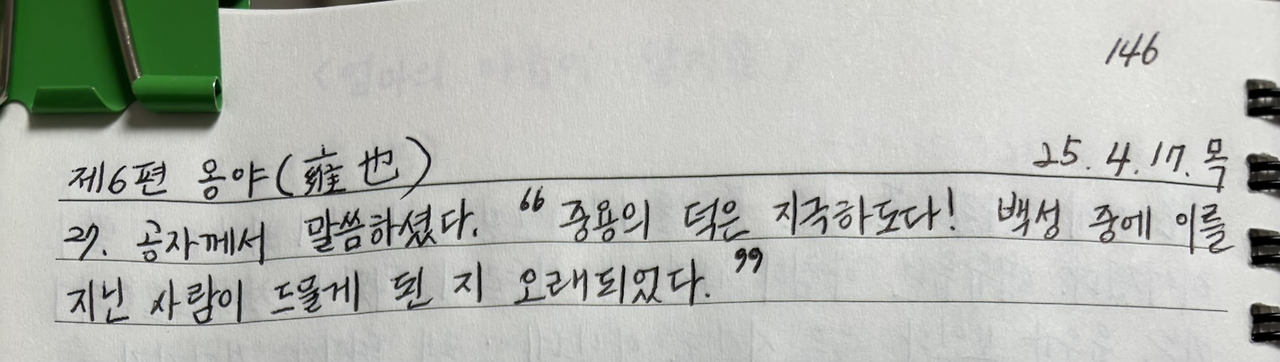 146
제6편 옹야(雍也)
25.4.17.목
27. 공자께서 말씀하셨다. "중용의 덕은 지극하도다! 백성 중에 이를
지닌 사람이 드물게 된 지 오래되었다."